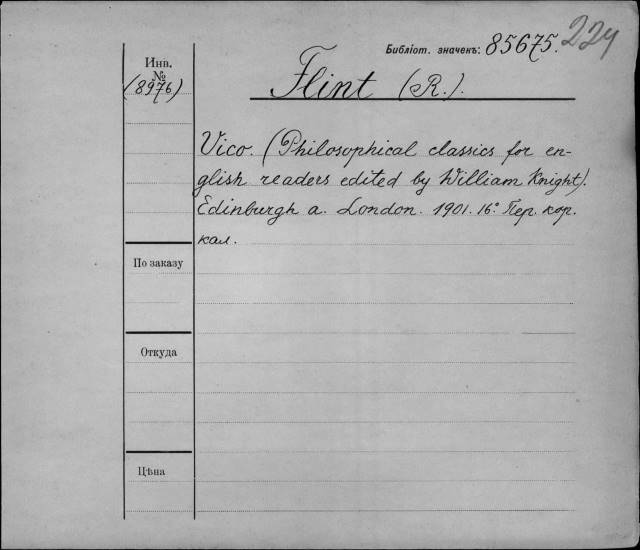 Библіот. значекъ: 85675. 224
Инв. №
(8976)
Flint (R.).
Vico. (Philosophical classics for en-
glish readers edited by William Knight).
Edinburgh a. London. 1901. 16° Пер. кор.
кал.
По заказу
Откуда
Цѣна